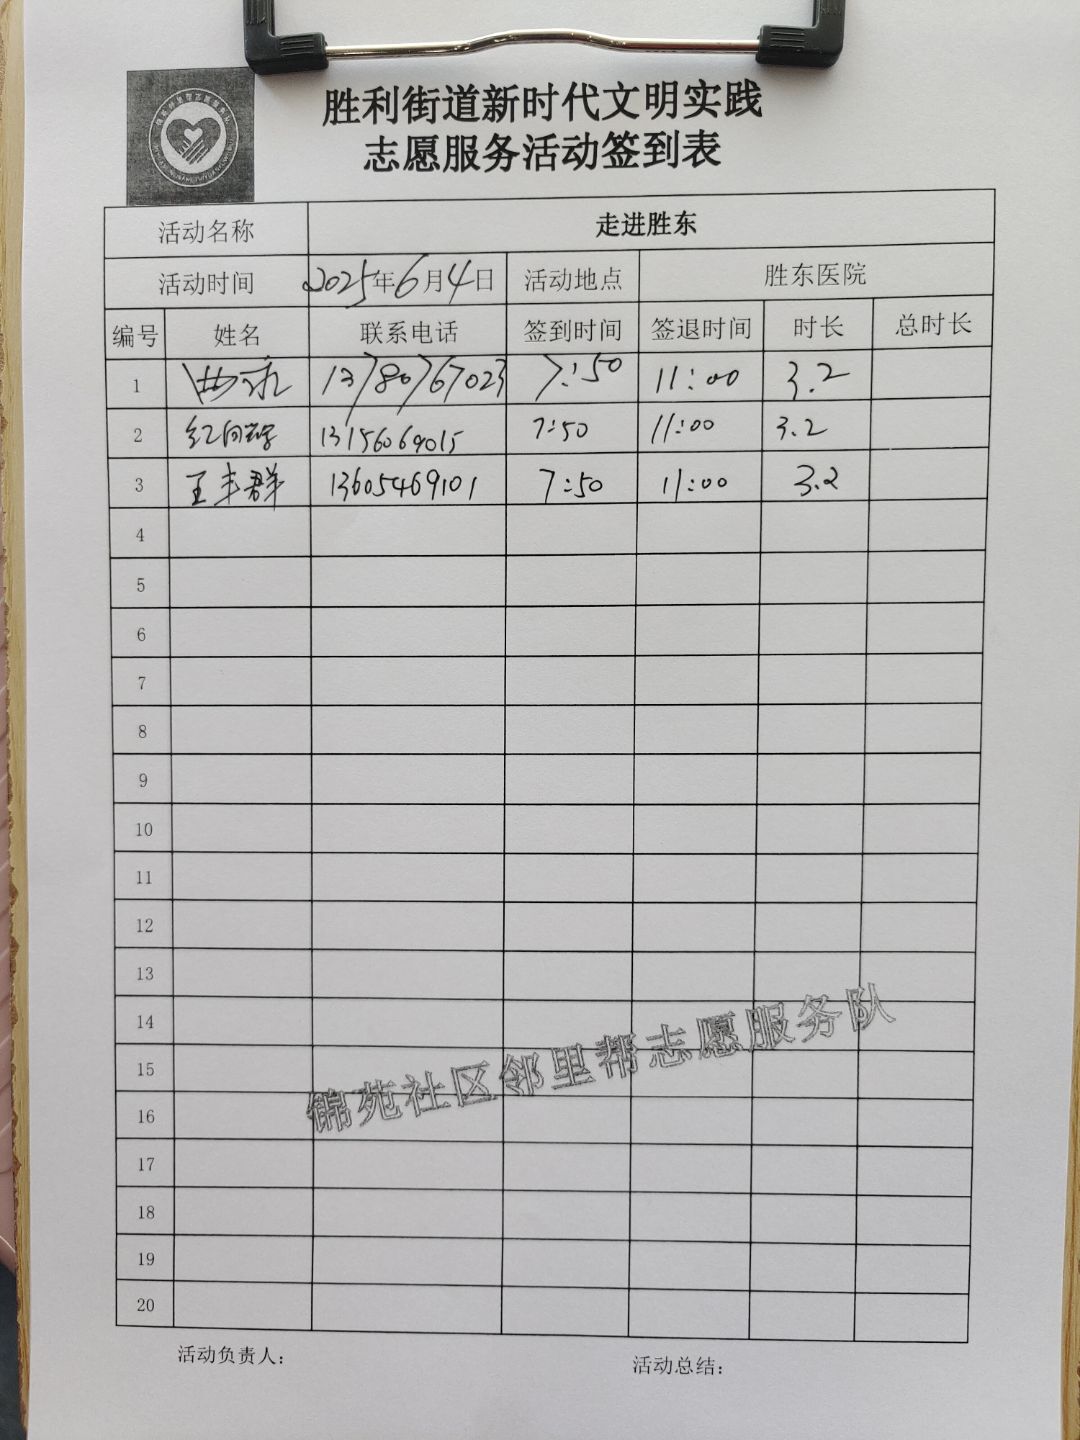 胜利街道新时代文明实践
志愿服务活动签到表
活动名称 走进胜东
活动时间 2025年6月4日 活动地点 胜东医院
编号 姓名 联系电话 签到时间 签退时间 时长 总时长
1 13780767023 7:50 11:00 3.2
2 13156069015 7:50 11:00 3.2
3 王丰群 13605469101 7:50 11:00 3.2
4
5
6
7
8
9
10
11
12
13
14
15
16
17
18
19
20
锦苑社区邻里帮志愿服务队
活动负责人: 活动总结: